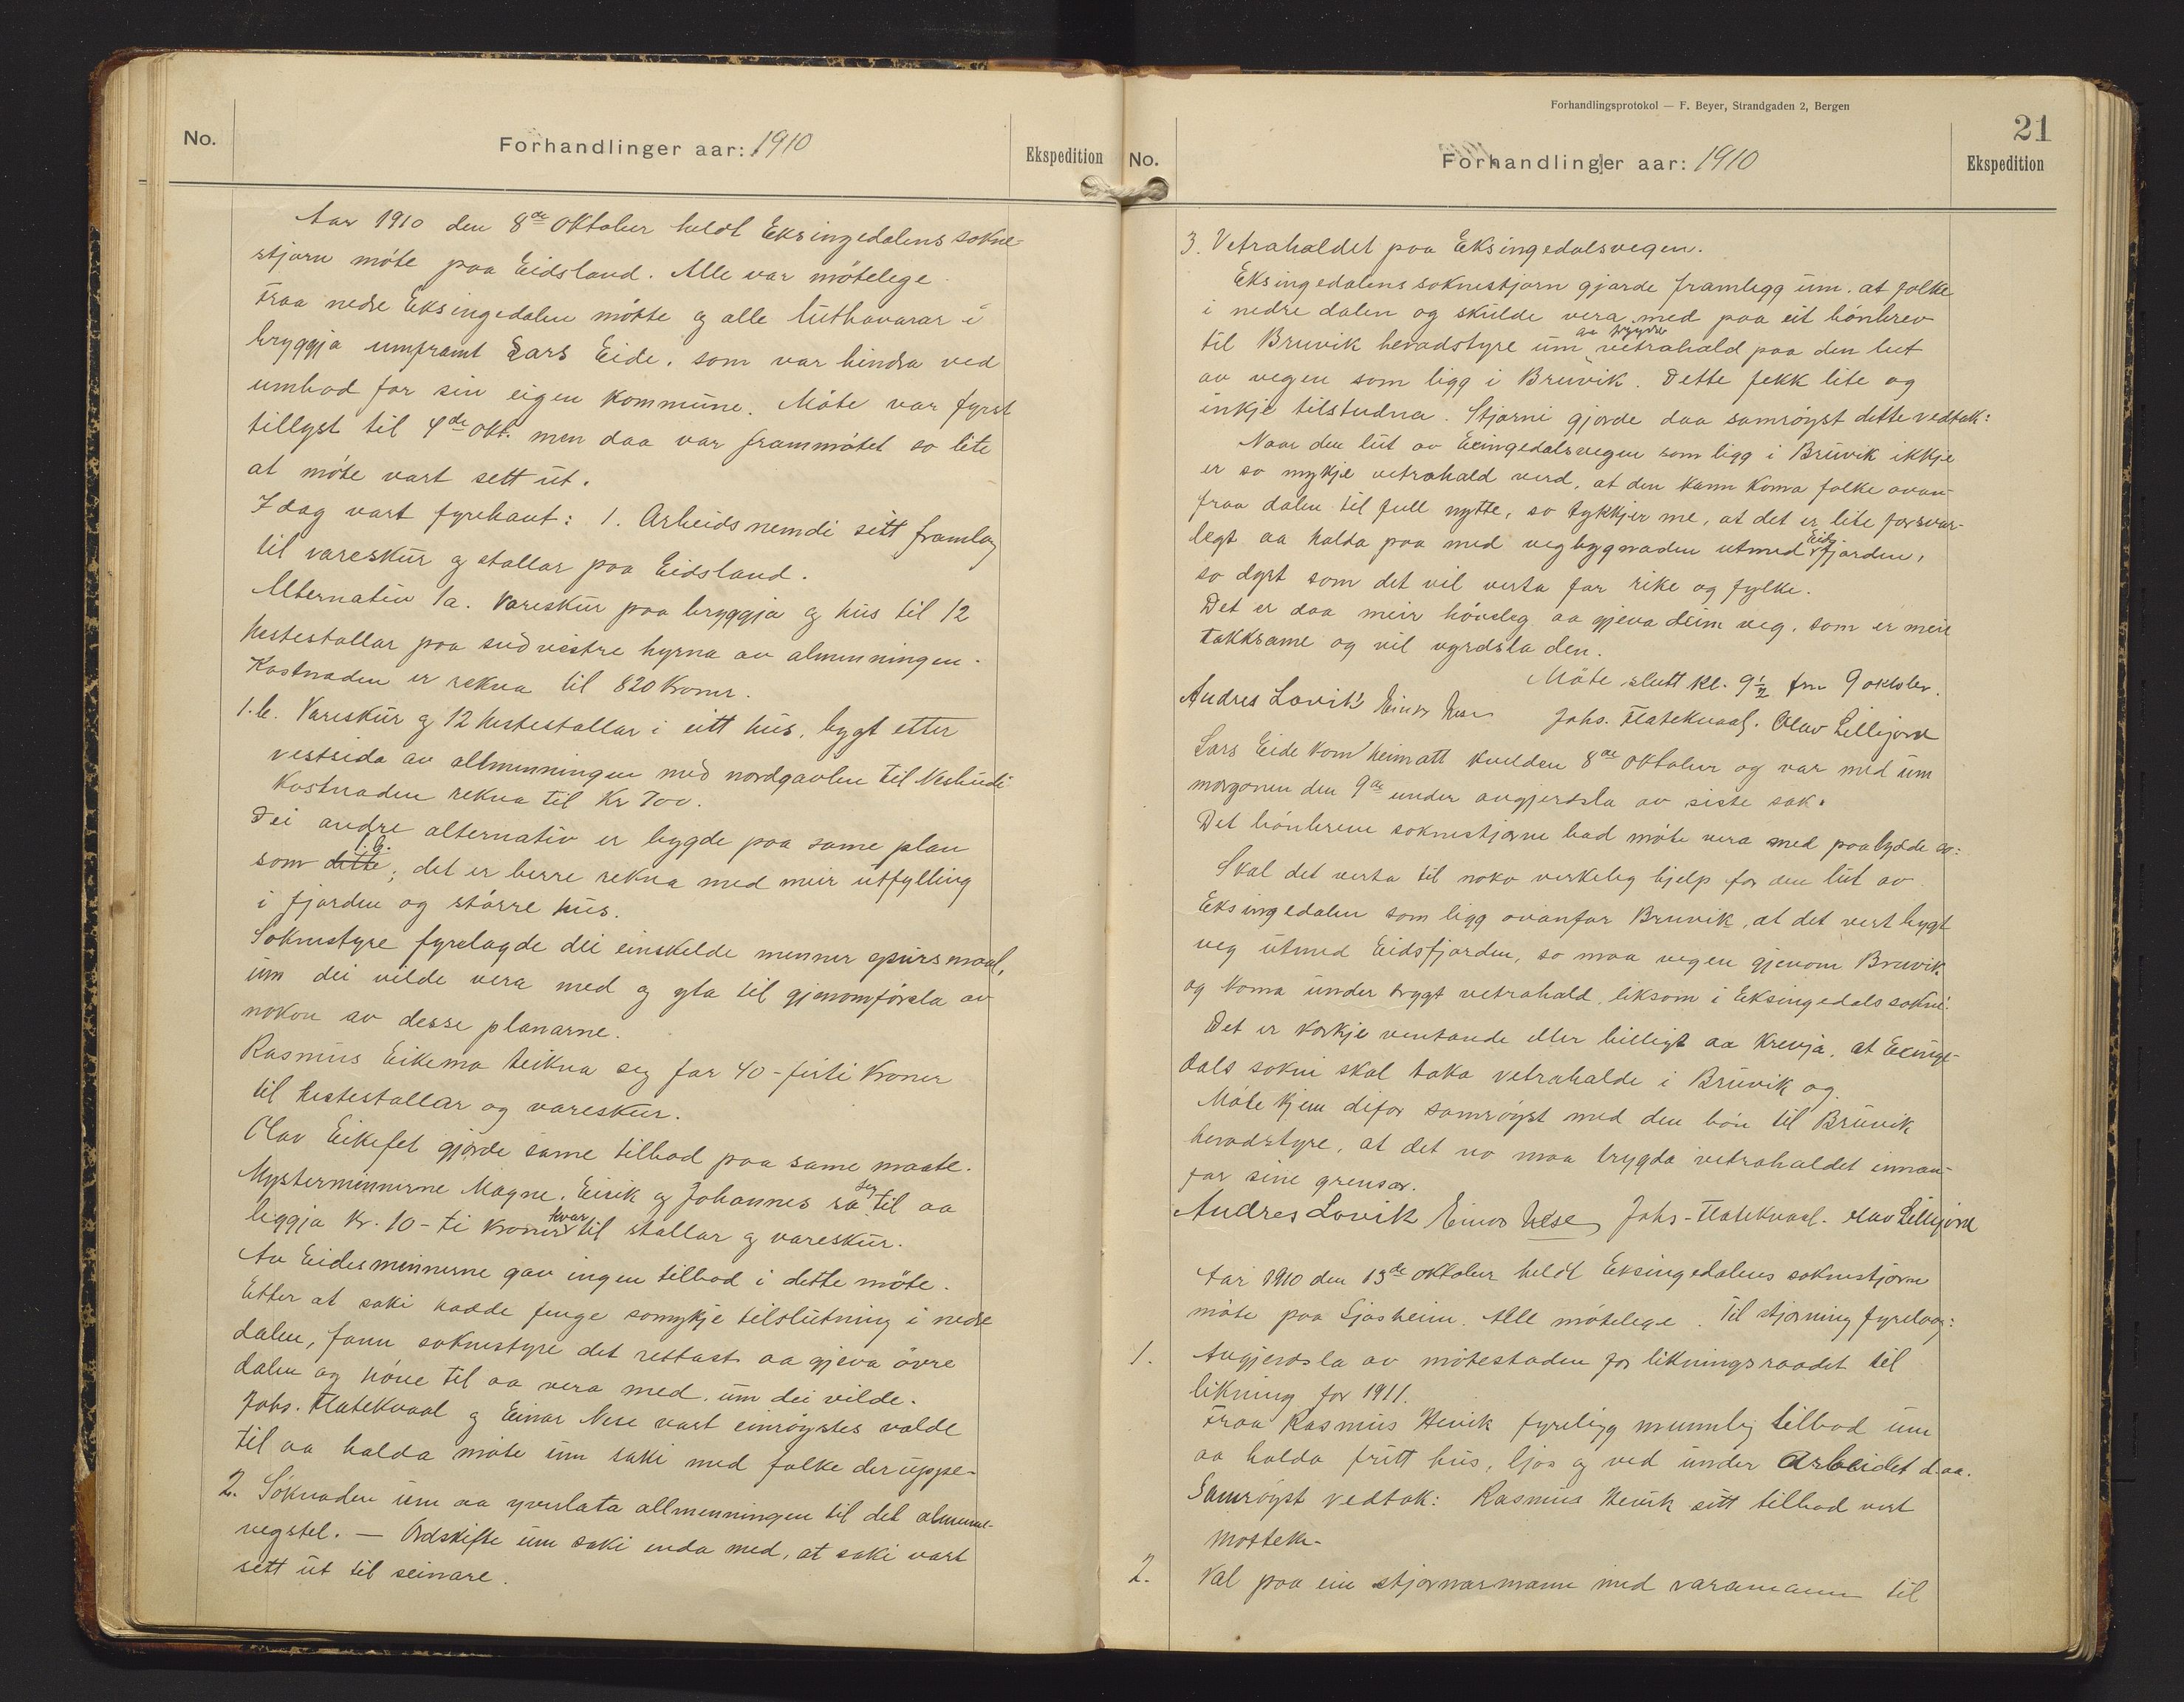 No.
Forhandlinger aar: 1910
Ekspedition
Aar 1910 den 8de Oktober heldt Eksingedalens sokne-
stjorn møte paa Eidsland. Alle var møtelege.
Fraa nedre Eksingedalen møtte og alle luthavarar i
bryggja umframt Lars Eide, som var hindra ved
umbod for sin eigen kommune. Møte var fyrst
tillyst til 4de okt. men daa var frammøtet so lite
at møte vart sett ut.
I dag vart fyrehavt: 1. Arbeidsnemdi sitt framlag
til vareskur og stallar paa Eidsland.
Alternativ 1a. Vareskur paa bryggja og hus til 12
hestestallar paa sudvestre hyrna av almenningen.
Kostnaden er rekna til 820 kroner.
1.b. Vareskur og 12 hestestallar i eitt hus, bygt etter
vestsida av allmenningen med nordgavlen til Nesbudi
Kostnaden rekna til Kr 700.
Dei andre alternativ er bygde paa same plan
1.b.
som dette; det er berre rekna med meir utfylling
i fjorden og større hus.
Soknestyre fyrelagde dei einskilde menner spursmaal,
um dei vilde vera med og yta til gjenomførsla av
nokon av desse planarne.
Rasmus Eikemo teikna seg for 40 - firti kroner
til hestestallar og vareskur.
Olav Eikefet gjorde same tilbod paa same maate.
Mysterminnerne Magne, Eirik og Johannes sa seg til aa
leggja kr. 10 - ti kroner kvar til stallar og vareskur.
Av Eidesminnerne gav ingen tilbod i dette møte.
Etter at saki hadde fenge somykje tilslutning i nedre
dalen, fann soknestyre det rettast aa gjeva øvre
dalen og høve til aa vera med, um dei vilde.
Johs. Flatekvaal og Einar Nese vart einrøystes valde
til aa halda møte um saki med folke der uppe.
2. Søknaden um aa yverlata allmenningen til det almenne
vegstel. — Ordskifte um saki enda med, at saki vart
sett ut til seinare.
Forhandlingsprotokol — F. Beyer, Strandgaden 2, Bergen
21
No.
Forhandlinger aar: 1910
Ekspedition
3. Vetrahaldet paa Eksingedalsvegen.
Eksingedalens soknestjorn gjorde framlegg um, at folke
i nedre dalen og skulde vera med paa eit bønbrev
til Bruvik heradstyre um vetrahald paa den lut
av vegen som ligg i Bruvik. Dette fekk lite og
inkje tilstudna. Stjorni gjorde daa samrøyst dette vedtak:
Naar den lut av Exingedalsvegen som ligg i Bruvik ikkje
er so mykje vetrahald verd, at den kann koma folke ovan-
fraa dalen til full nytte, so tykkjer me, at det er lite forsvar-
legt aa halda paa med vegbygnaden utmed Eidsfjorden,
so dyrt som det vil verta for rike og fylke.
Det er daa meir høveleg aa gjeva deim veg, som er meir
takksame og vil vyrdsla den.
Møte slutt kl. 9½ fm 9 oktober.
Andres Lavik Einar Nese Johs. Flatekvaal. Olav Lillejord
Lars Eide kom heimatt kvelden 8de oktober og var med um
morgonen den 9de under avgjerdsla av siste sak.
Det bønbreve soknestjorne bad møte vera med paa lydde so:
Skal det verta til noko verkeleg hjelp for den lut av
Eksingedalen som ligg ovanfor Bruvik, at det vert bygt
veg utmed Eidsfjorden, so maa vegen gjenom Bruvik
og koma under trygt vetrahald, liksom i Eksingedals sokni.
Det er korkje ventande eller billigt aa krevja, at Exinge-
dals sokni skal taka vetrahalde i Bruvik og.
Møte kjem difor samrøyst med den bøn til Bruvik
heradstyre, at det no maa trygda vetrahaldet innan-
for sine grensor.
Andres Lavik Einar Nese Johs. Flatekvaal. Olav Lillejord
Aar 1910 den 13de oktober heldt Eksingedalens soknestjorn
møte paa Ljosheim. Alle møtelege. Til stjorning fyrelaag:
1. Avgjerdsla av møtestaden for likningsraadet til
likning for 1911.
Fraa Rasmus Hevik fyreligg munnleg tilbod um
aa halda fritt hus, ljos og ved under arbeidet d.aa.
Samrøyst vedtak: Rasmus Hevik sitt tilbod vert
motteke.
2. Val paa ein stjornarmann med varamann til